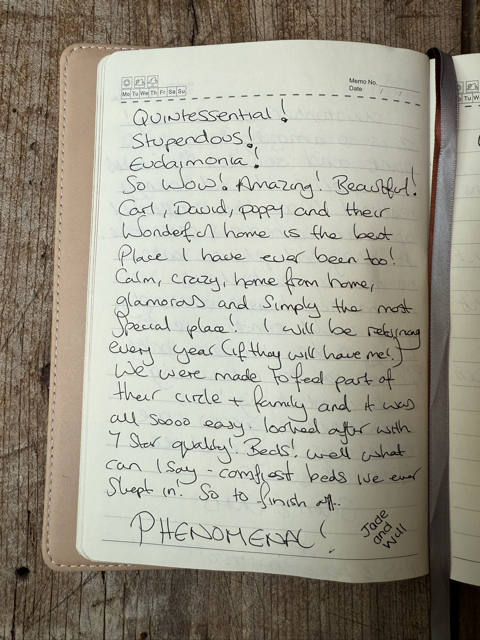 Memo No.
Mo Tu We Th Fr Sa Su
Date / /
Quintessential!
Stupendous!
Eudaimonia!
So Wow! Amazing! Beautiful!
Carl, David, poppy and their
Wonderful home is the best
Place I have ever been too!
Calm, crazy, home from home,
glamorous and Simply the most
Special place! I will be
every year (if they will have me!)
We were made to feel part of
their circle + family and it was
all soooo easy. looked after with
7 Star quality! Beds! well what
can I say - comfiest beds ive ever
Slept in! So to finish off.
PHENOMENAL!
Jade
and
Will